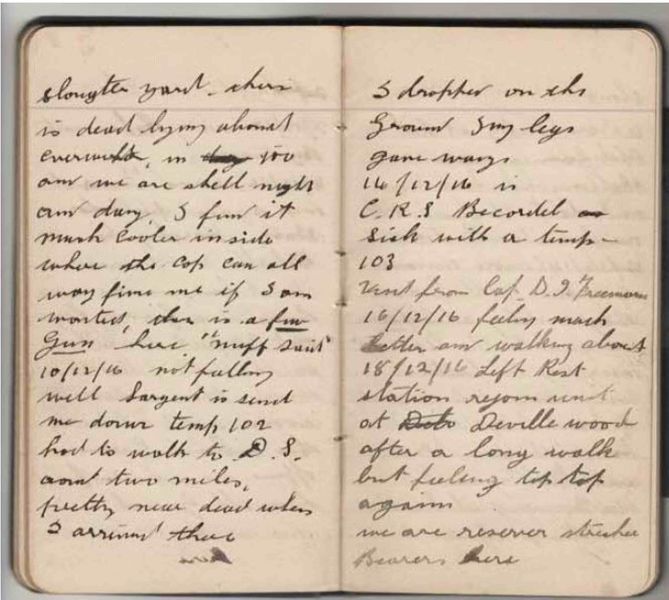 slougter yard. ther
is dead lying about
everwehr, in 100
and we are shell night
and day, I fin it
mush cooler inside
where the Cop can all
way fine me if I am
wanted, ther is a few
Gun here "nuff said"
10/12/16 not falling
well Sargent is send
me down temp 102
had to walk to D.S.
aont two miles,
pretty near dead when
I arrived there
I dropped on the
Ground my legs
gave ways
14/12/16 in
C.R.S Becordel
Sick with a temp -
103
Visit from Cap D. Freeman
16/12/16 feeling mush
better am walking about
18/12/16 Left Rest
station rejoin unit
at Deville wood
after a long walk
but feeling tip top
again
we are reserver strecher
Bearers here